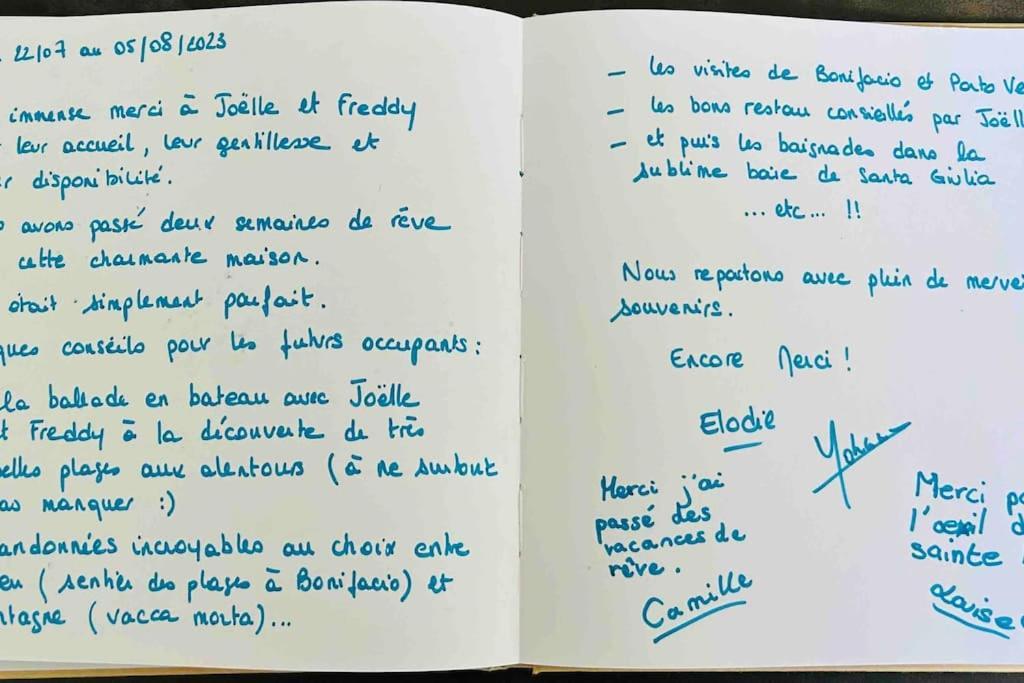 22/07 au 05/08/2023
immense merci à Joëlle et Freddy
leur accueil, leur gentillesse et
r disponibilité.
avons passé deux semaines de rêve
cette charmante maison.
était simplement parfait.
ques conseils pour les futurs occupants :
la ballade en bateau avec Joëlle
t Freddy à la découverte de très
belles plages aux alentours (à ne surtout
as manquer :)
andonnées incroyables au choix entre
(sentier des plages à Bonifacio) et
ntagne (vacca morta)...
- les visites de Bonifacio et Porto Ve
- les bons restau conseillés par Joëll
- et puis les baignades dans la
sublime baie de Santa Giulia
... etc ... !!
Nous repartons avec plein de mervei
souvenirs.
Encore Merci !
Elodie
Yohann
Merci j'ai
passé des
vacances de
rêve.
Camille
Merci po
l'oeil d
sainte
Louise